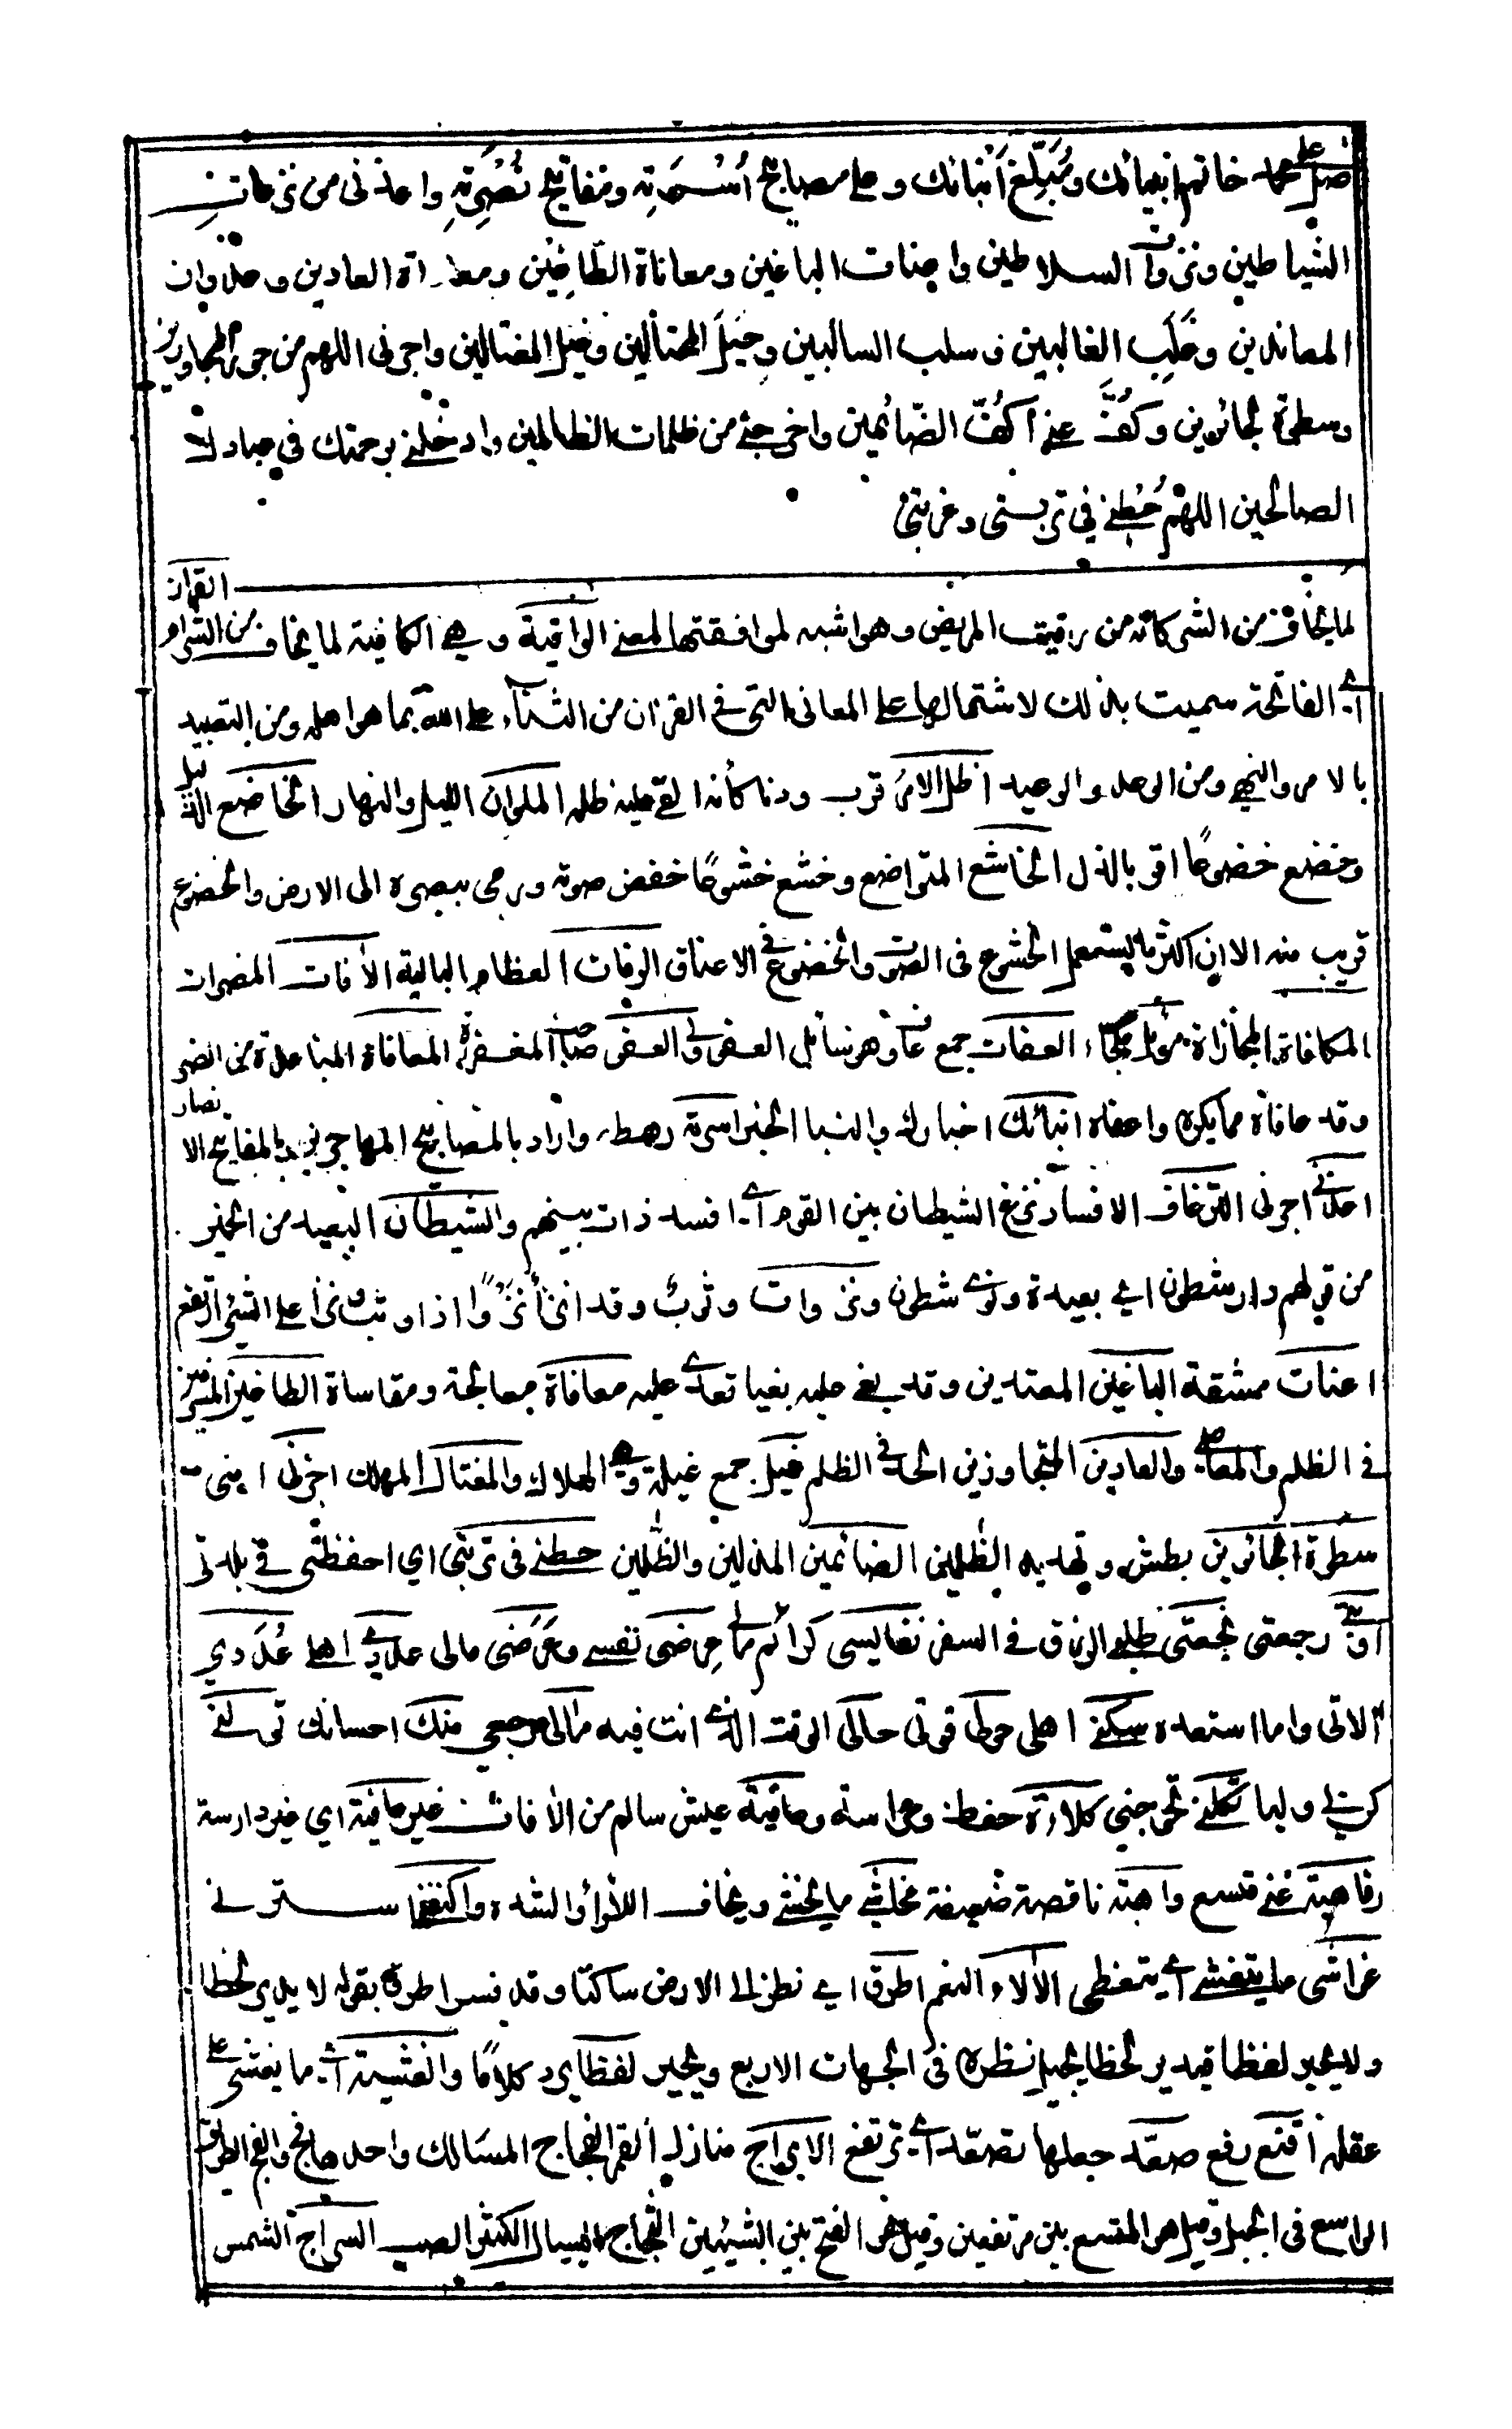 صل على محمد خاتم انبيائك ومُبَلِّغ أنبائك وعلى مصابيح أُسْرَتِهِ ومفاتيح نُصْرَتِهِ واعذنى من نزغات
الشياطين ونزوات السلاطين واعنات الباغين ومعاناة الطاغين ومعاداة العادين وعدوان
المعاندين وغَلَب الغالبين وسلب السالبين وحِيَل المحتالين وغِيَل المغتالين واجرنى اللهم من جور المجاورين
وسطوة الجائرين وكُفَّ عنى أكُفّ الضّائمين واخرجنى من ظلمات الظالمين وادخلنى برحمتك في عبادك
الصالحين اللهم حُطنى في تربتى وغربتى
القران
لما يخاف من الشر كانه من رقيت المريض وهو اشبه لموافقتها لمعنى الواقية وهي الكافية لما يخاف من الشر ام
أي الفاتحة سميت بذلك لاشتمالها على المعانى التى في القرآن من الثناء على الله بما هو اهله ومن التعبيد
بالامر والنهي ومن الوعد والوعيد اظل الامر قرب ودنا كأنه القى عليه ظله الملوان الليل والنهار الخاضع الذليل
وخضع خضوعًا اقر بالذل الخاشع المتواضع وخشع خشوعًا خفض صوته ورمى ببصره الى الارض والخضوع
قريب منه الا ان اكثر ما يستعمل الخشوع فى الصوت والخضوع في الاعناق الرفات العظام البالية الآفات المضرات
المكافاة المجازاة موئل ملجاء العفاة جمع عاف وهو سائل العفو ولى العفو صاحب المغفرة المعافاة المباعدة من الضر
وقد عافاه مما يكره واعفاه انبائك اخبارك والنبا الخبر اسرته رهطه واراد بالمصابيح المهاجرين وبالمفاتيح الانصار
اعذنى اجرنى النزغات الافساد نزغ الشيطان بين القوم أي افسد ذات بينهم والشيطان البعيد من الخير
من قولهم دار شطون اي بعيدة ونوى شطون ونزوات وثوب وقد نزا نزوًا اذا وثب ونزا على الشئ ارتفع
اعنات مشقة الباغين المعتدين وقد بغى عليه بغيا تعدى عليه معاناة معالجة ومقاساة الطاغين المسرفين
في الظلم والمعاصى والعادين المتجاوزين الحد في الظلم غيل جمع غيلة وهي الهلاك والمغتال المهلك اجرنى امنى
سطوة الجائرين بطش وتهديد الظلمين الضائمين المذلين والظلمين حطنى فى تربتى اي احفظنى في بلدتى
اوبتى رجعتى نجعتى طلب الرزاق في السفر نفائسى كرائم مالى عرضى نفسى وعَرَضى مالى عددى اهلى عُدَدي
آلاتى واما استعده سكنى اهلى حولى قوتى حالى الوقت الذي انت فيه مآلى مرجعي منك احسانك تولنى
كن لي وليا تكلنى تحوجني كلاءة حفظ وحراسة وعافية عيش سالم من الآفات غير عافية اي غير دارسة
رفاهية غنى متسع واهية ناقصة ضعيفة مخاشى ما يخشى ويخاف اللأواء الشدة واكنفنى استرنى
غواشى ما يتغشى أي يتغطى الآلاء النعم اطرق اي نظر الى الارض ساكتا وقد فسر اطرق بقوله لا يدير لحظا
ولا يحير لفظا فيدير لحظا يجيل نظره في الجهات الاربع ويحير لفظا يرد كلامًا والغشية أي ما يغشى على
عقله اقنع رفع صعّد جعلها تصعّد أي ترتفع الابراج منازل القمر الفجاج المسالك واحدها فج والفج الطريق
الواسع فى الجبل وقيل هو المتسع بين مرتفعين وقيل هو الفتح بين الشيئين الثجاج السيال الكثير الصب السراج الشمس